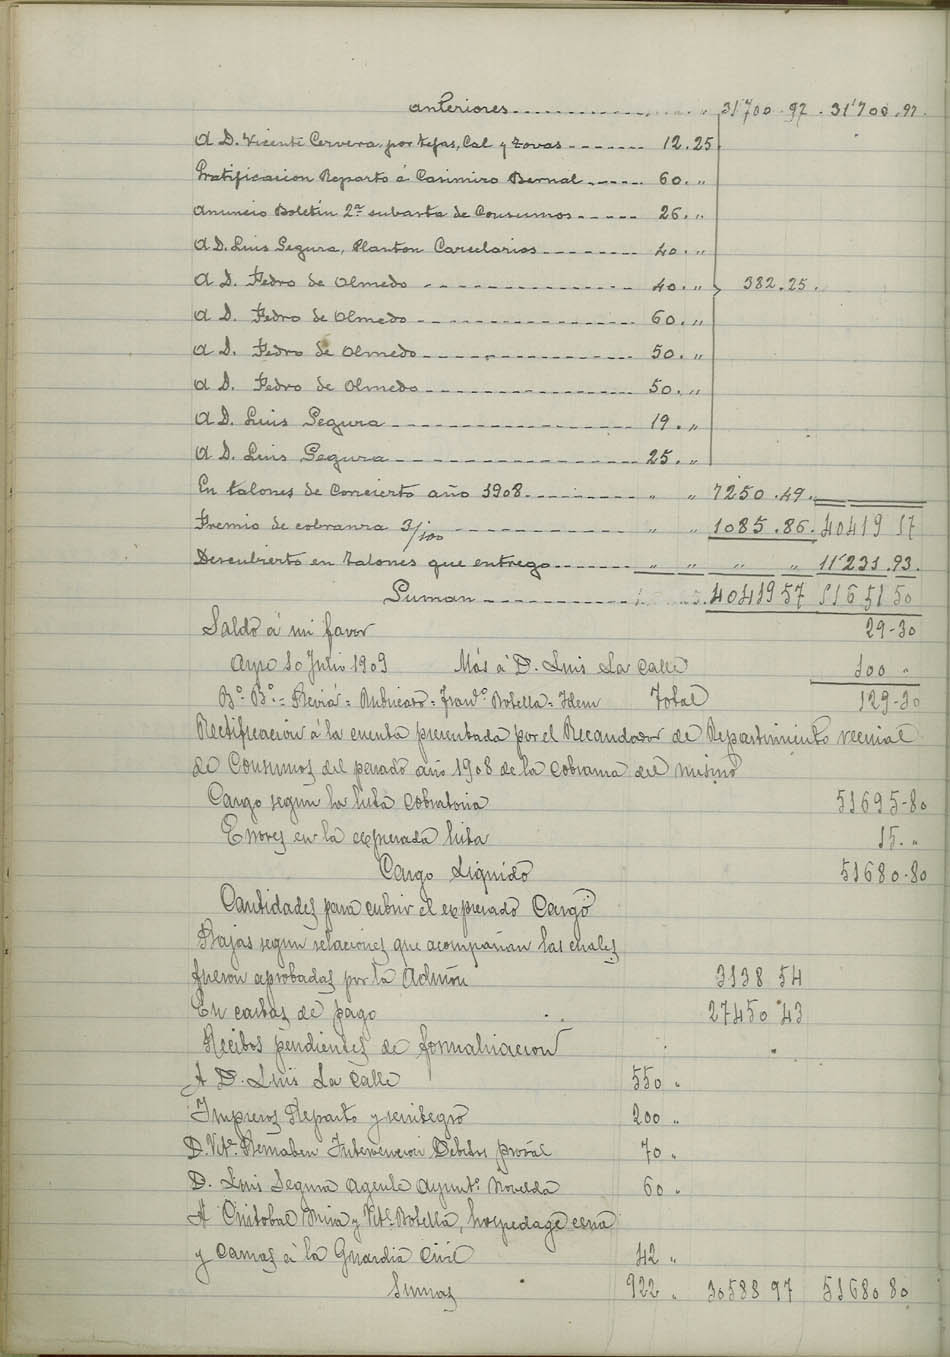 anteriores ------ " 31'700.92. 31'700.92.
A D. Vicente Cervera, por tejas, Cal y tovas ------ 12.25
Gratificacion Reparto á Casimiro Bernal ------ 60. "
Anuncio Boletin 2ª subasta de Consumos ------ 26. "
A D. Luis Segura, Planton Carcelarios ------ 40. "
A D. Pedro de Olmedo ------ 40. " 382.25.
A D. Pedro de Olmedo ------ 60. "
A D. Pedro de Olmedo ------ 50. "
A D. Pedro de Olmedo ------ 50. "
A D. Luis Segura ------ 19. "
A D. Luis Segura ------ 25. "
En talones de Concierto año 1908 ------ " " 7250.49.
Premio de cobranza 3/100 ------ " " 1085.86. 40419 57
Descubierto en talones que entrego ------ " " " " 11'231.93.
Suman ------ 40419 57 51651 50
Saldo á mi favor 29-30
10 Julio 1909 Más á D. Luis La Calle 100 "
Bº. Bº. = = Rubricado = Franº. Botella = Idem Total 129-30
Rectificacion á la cuenta presentada por el Recaudador de Repartimiento vecinal
de Consumos del pasado año 1908 de la cobranza del mismo
Cargo segun la lista cobratoria 51695-80
Errores en la expresada lista 15. "
Cargo Liquido 51680-80
Cantidades para cubrir el expresado Cargo
Bajas segun relaciones que acompañan las cuales
fueron aprobadas por la Admón 3138 54
En cartas de pago 27450 43
Recibos pendientes de formalizacion
A D. Luis La Calle 550 "
Impresos Reparto y reintegro 200 "
D. Vitº. Intervencion Débitos 70 "
D. Luis Segura Agente Ayuntº. Novelda 60 "
A Cristobal Mira y Vitº. Botella, hospedage cena
y camas á la Guardia Civil 42 "
Sumas 922 " 30588 97 51680 80